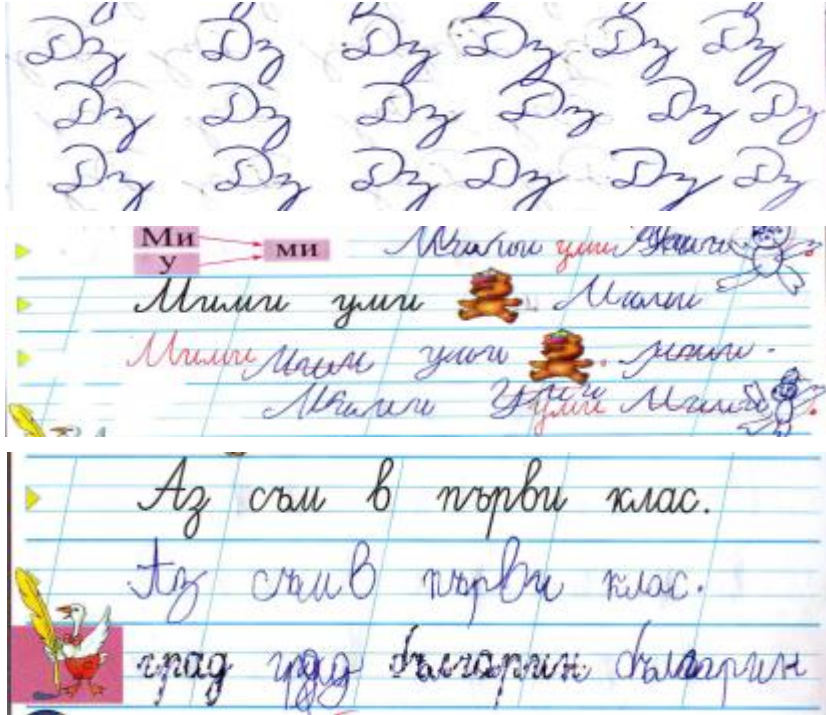 Дз Дз Дз Дз Дз Дз
Дз Дз Дз Дз Дз Дз
Дз Дз Дз Дз Дз Дз
Ми
у ми
Мими уми Мими
Мими уми Мими
Мими Мими уми Мими
Мими уми Мими
Аз съм в първи клас.
Аз съм в първи клас.
град град българин българин